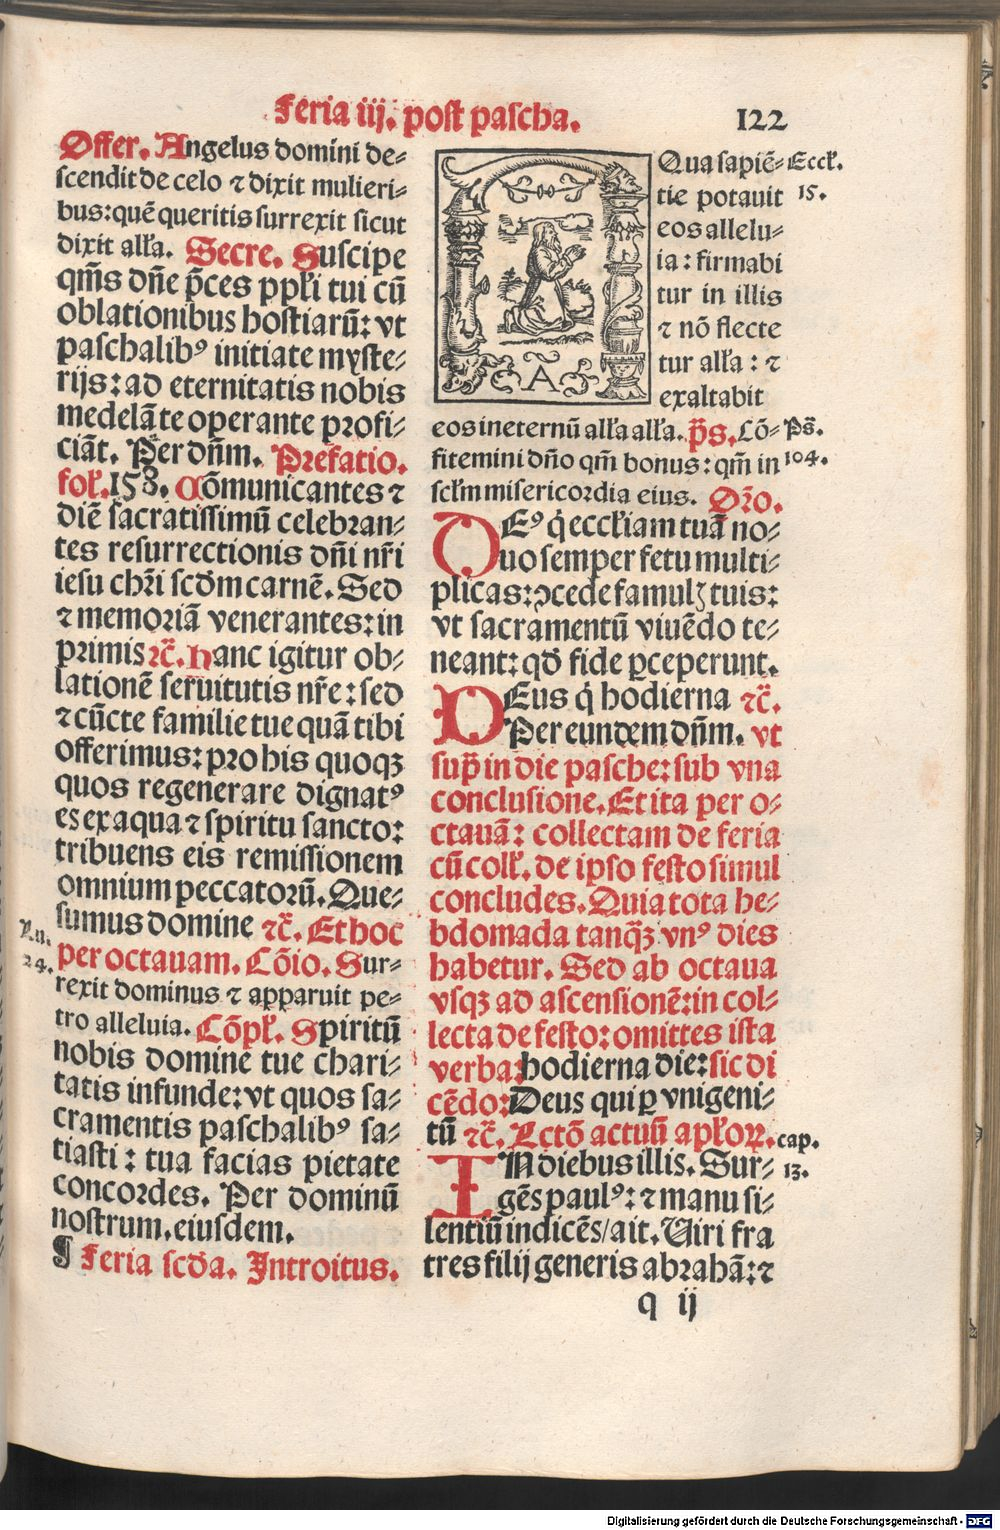 Feria iij. post pascha.
122
Offer. Angelus domini de-
scendit de celo ⁊ dixit mulieri-
bus: quē queritis surrexit sicut
dixit alła. Secre. Suscipe
qm̄s dn̄e p̄ces ppłi tui cū
oblationibus hostiarū: vt
paschalibꝰ initiate myste-
rijs: ad eternitatis nobis
medelā te operante profi-
ciāt. Per dn̄m. Prefatio.
foł. 158. Cōmunicantes ⁊
diē sacratissimū celebran-
tes resurrectionis dn̄i nr̄i
iesu chr̄i scd̄m carnē. Sed
⁊ memoriā venerantes: in
primis ⁊c̄. Hanc igitur ob-
lationē seruitutis nr̄e: sed
⁊ cūcte familie tue quā tibi
offerimus: pro his quoqꝫ
quos regenerare dignatꝰ
es ex aqua ⁊ spiritu sancto:
tribuens eis remissionem
omnium peccatorū. Que-
sumus domine ⁊c̄. Et hoc
per octauam. Cōio. Sur-
Lu.
24.
rexit dominus ⁊ apparuit pe-
tro alleluia. Cōpł. Spiritū
nobis domine tue chari-
tatis infunde: vt quos sa-
cramentis paschalibꝰ sa-
tiasti: tua facias pietate
concordes. Per dominū
nostrum. eiusdem.
¶ Feria scd̄a. Introitus.
AQua sapiē-
tie potauit
eos allelu-
ia: firmabi
tur in illis
⁊ nō flecte
tur alła: ⁊
exaltabit
Eccł.
15.
eos in eternū alła alła. p̄s. Cō-
fitemini dn̄o qm̄ bonus: qm̄ in
scłm misericordia eius. Or̄o.
Ps̄.
104.
DEꝰ q̇ eccłiam tuā no-
uo semper fetu multi-
plicas: ꝯcede famulꝫ tuis:
vt sacramentū viuēdo te-
neant: qd̄ fide ꝑceperunt.
DEus q̇ hodierna ⁊c̄.
Per eundem dn̄m. vt
sup̄ in die pasche: sub vna
conclusione. Et ita per o-
ctauā: collectam de feria
cū coll̄. de ipso festo simul
concludes. Quia tota he-
bdomada tanq̄ꝫ vnꝰ dies
habetur. Sed ab octaua
vsqꝫ ad ascensionē: in col-
lecta de festo: omittes ista
verba: hodierna die: sic di
cēdo: Deus qui ꝑ vnigeni-
tū ⁊c̄. Lctō actuū apłoꝝ.
cap.
13.
IN diebus illis. Sur-
gēs paulꝰ: ⁊ manu si-
lentiū indicēs/ ait. Uiri fra
tres filij generis abrahā: ⁊
q ij
Digitalisierung gefördert durch die Deutsche Forschungsgemeinschaft - DFG